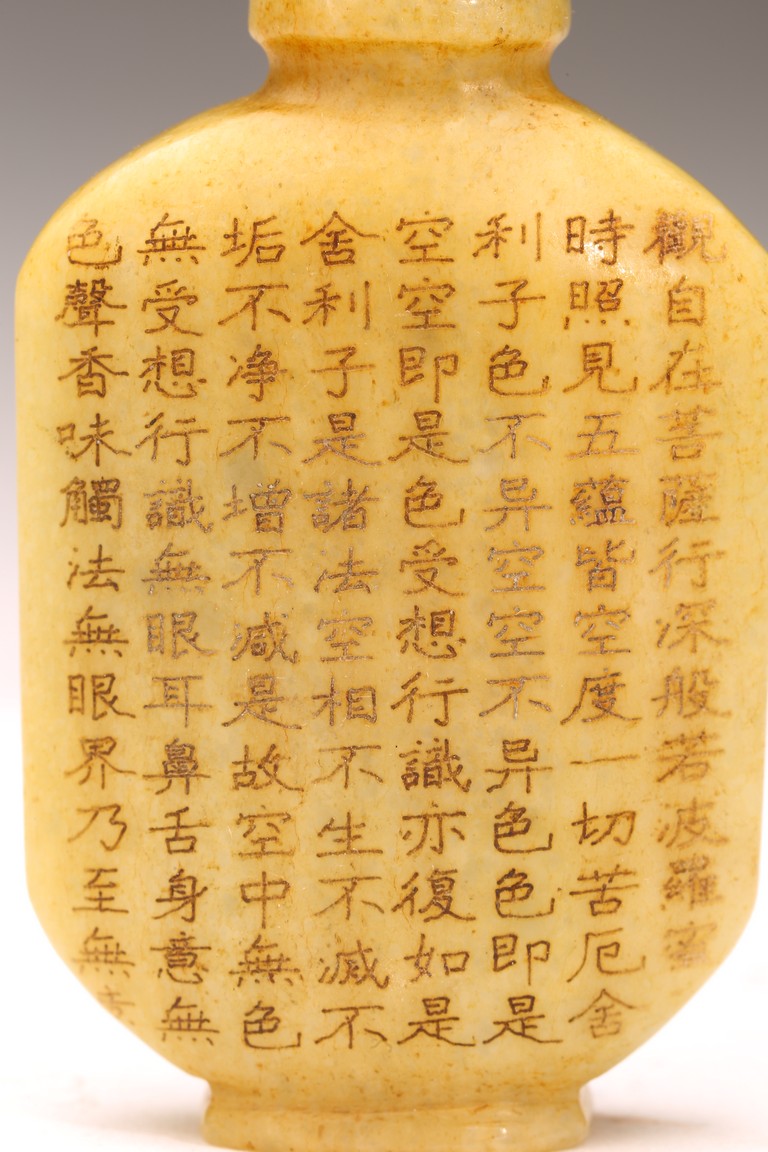 觀自在菩薩行深般若波羅蜜
時照見五蘊皆空度一切苦厄舍
利子色不异空空不异色色即是
空空即是色受想行識亦復如是
舍利子是諸法空相不生不滅不
垢不净不增不減是故空中無色
無受想行識無眼耳鼻舌身意無
色聲香味觸法無眼界乃至無